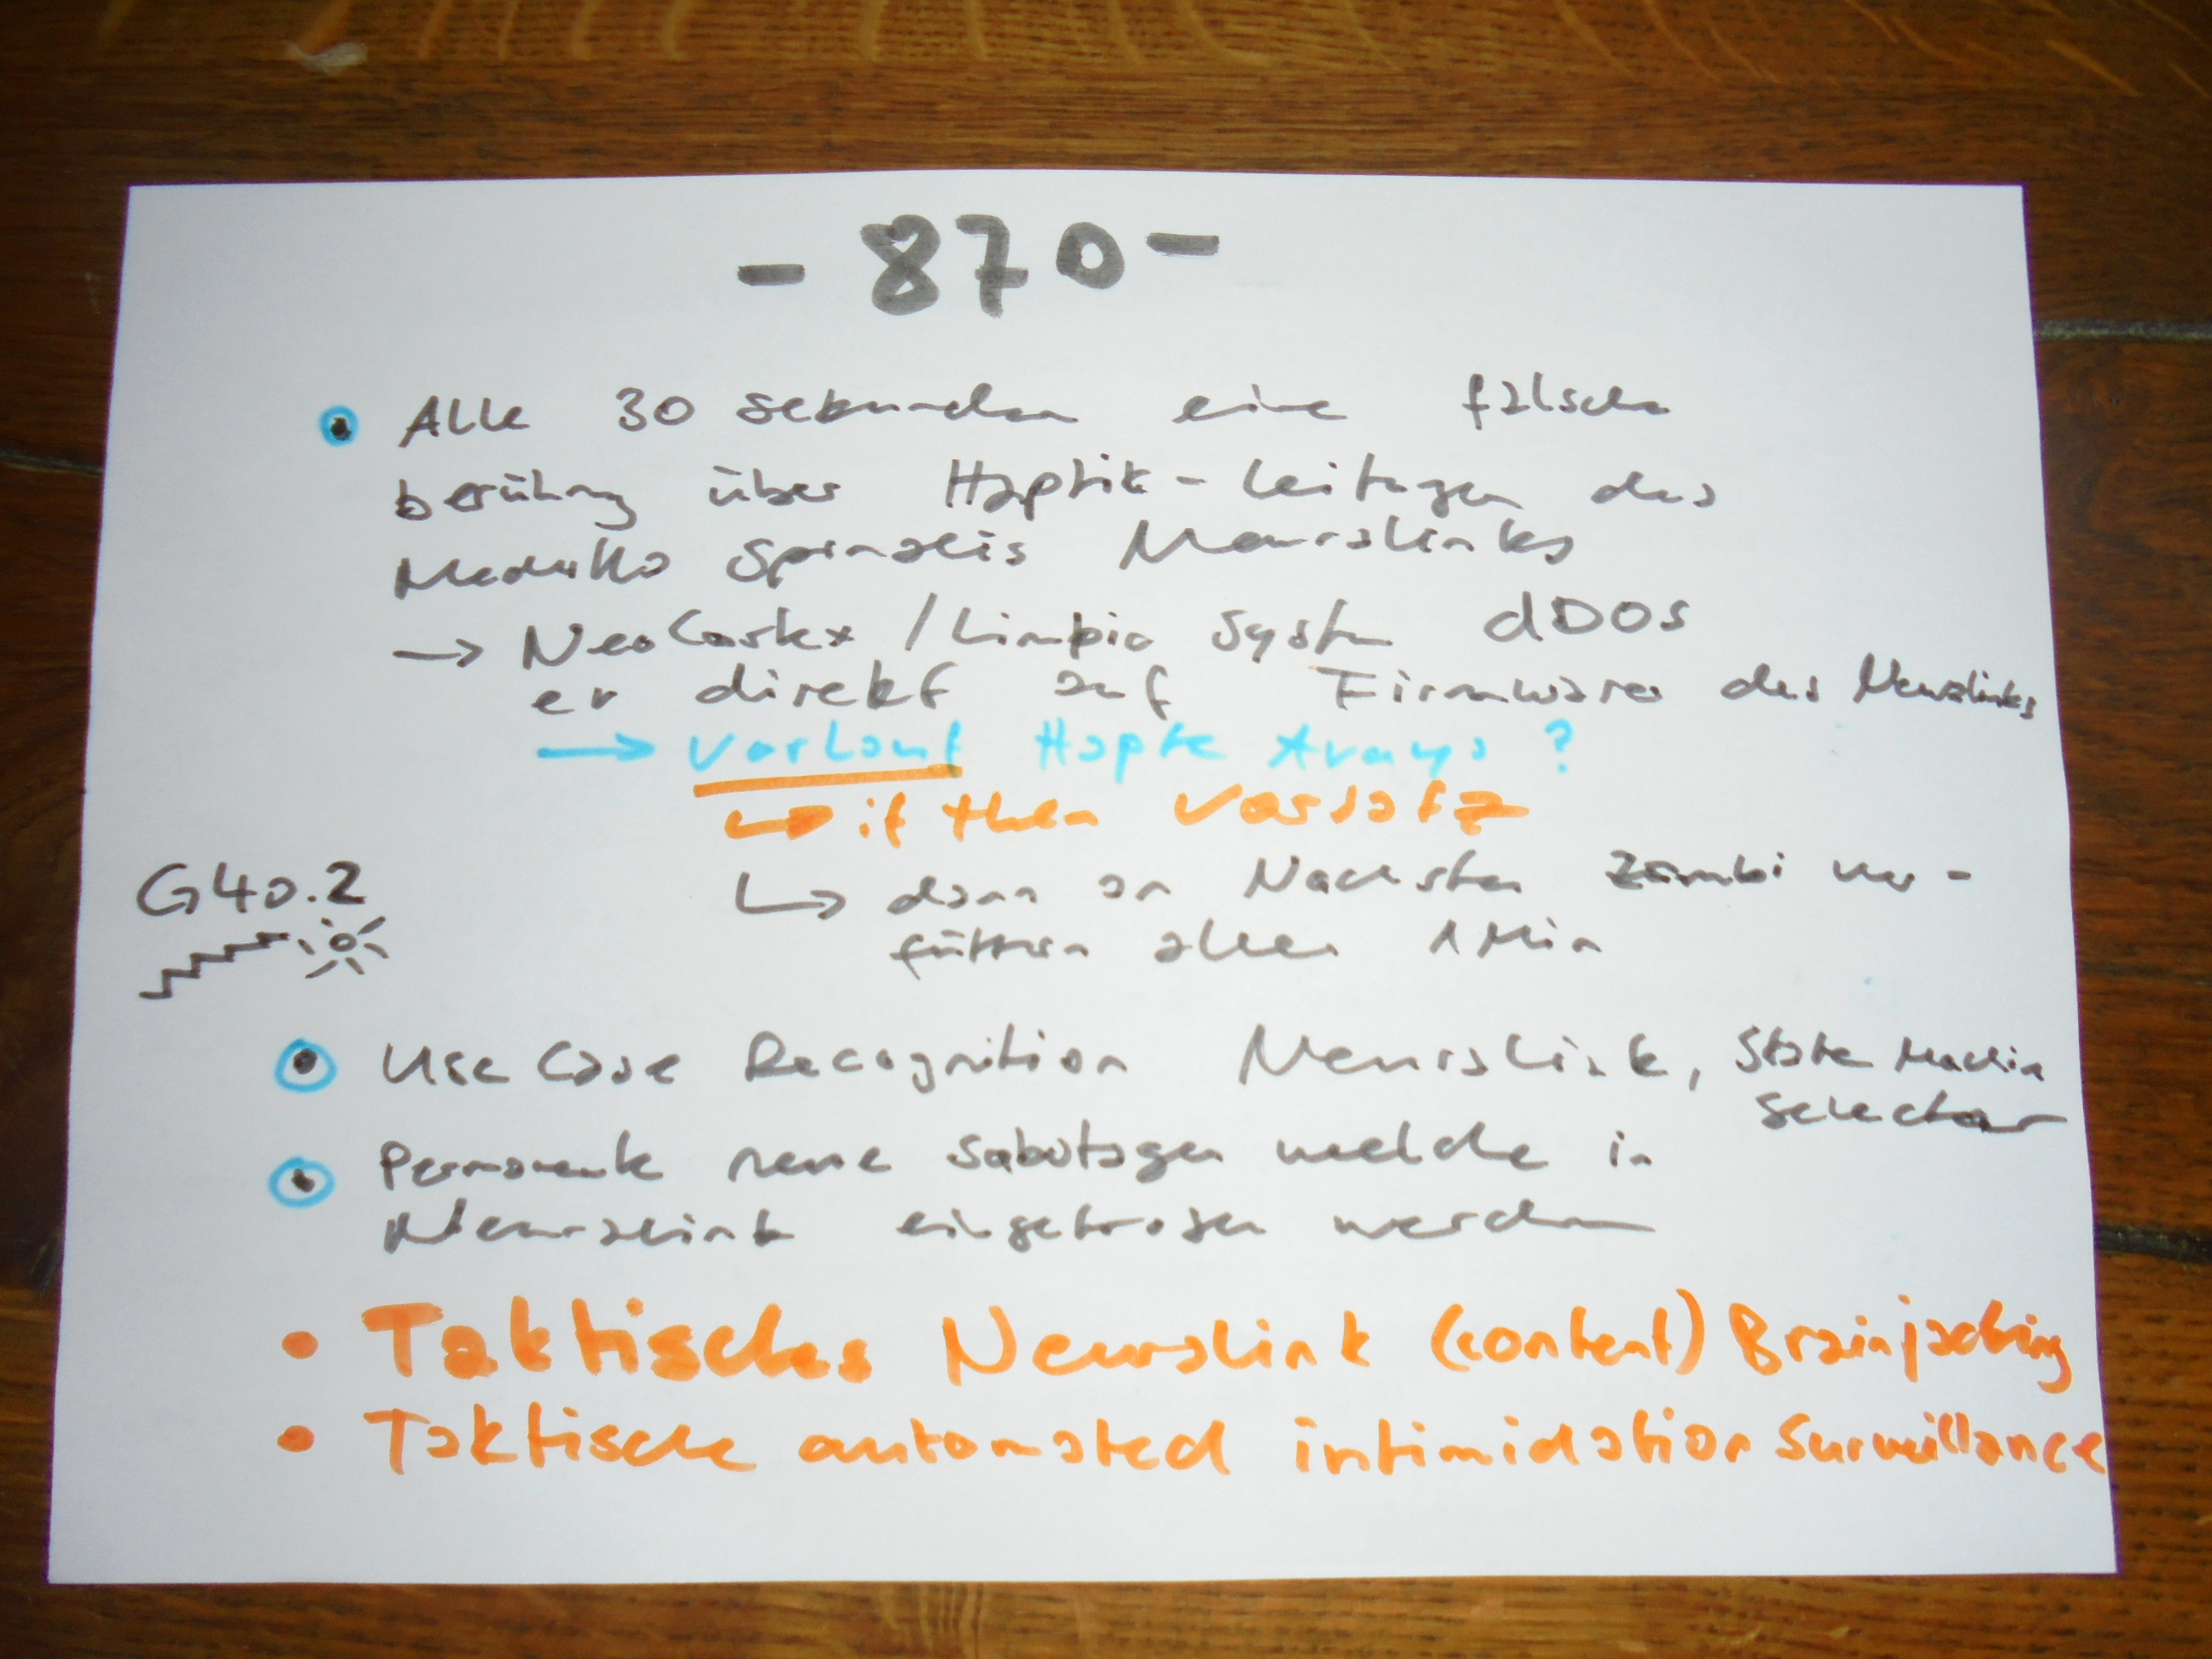 - 870 -
• Alle 30 sekunden eine falsche
berührung über Haptik - Leitungen des
Medulla Spinalis Neuralinks
→ NeoCortex / Limbic System dDOS
er direkt auf Firmware des Neuralinks
→ Vorlauf Hapte Arrays ?
↳ if then Vorsatz
G40.2
↳ dann an Nächsten Zombi ver-
füttern alle 1 Min
• Use Case Recognition Neuralink, State Machin
Selector
• Permanente neue Sabotagen welche in
Neuralink eingetragen werden
• Taktisches Neuralink (content) Brainjacking
• Taktische automated intimidation Surveillance